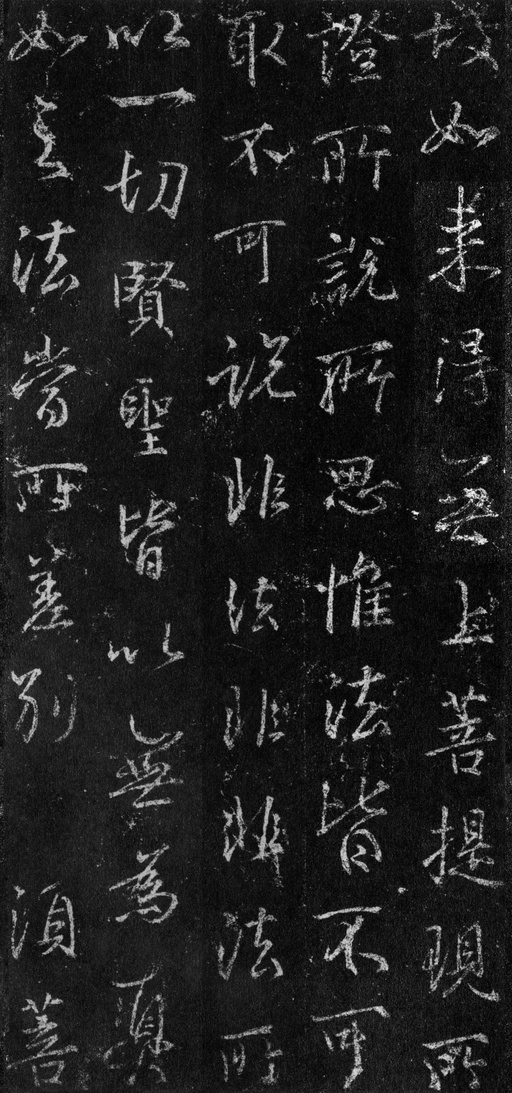 故如来得無上菩提現所
證所說所思惟法皆不可
取不可說非法非非法所
以一切賢聖皆以無為真
如之法當所差別 須菩